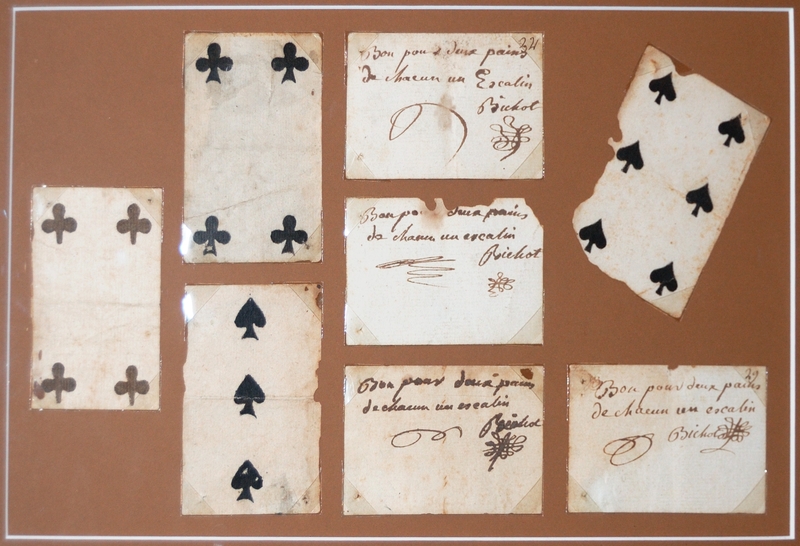 Bon pour deux pains
de chacun un Escalin
Bichot
Bon deux pains
de chacun un escalin
Bichot
Bon pour deux pains
de chacun un escalin
Bichot
Bon pour deux pains
de chacun un escalin
Bichot